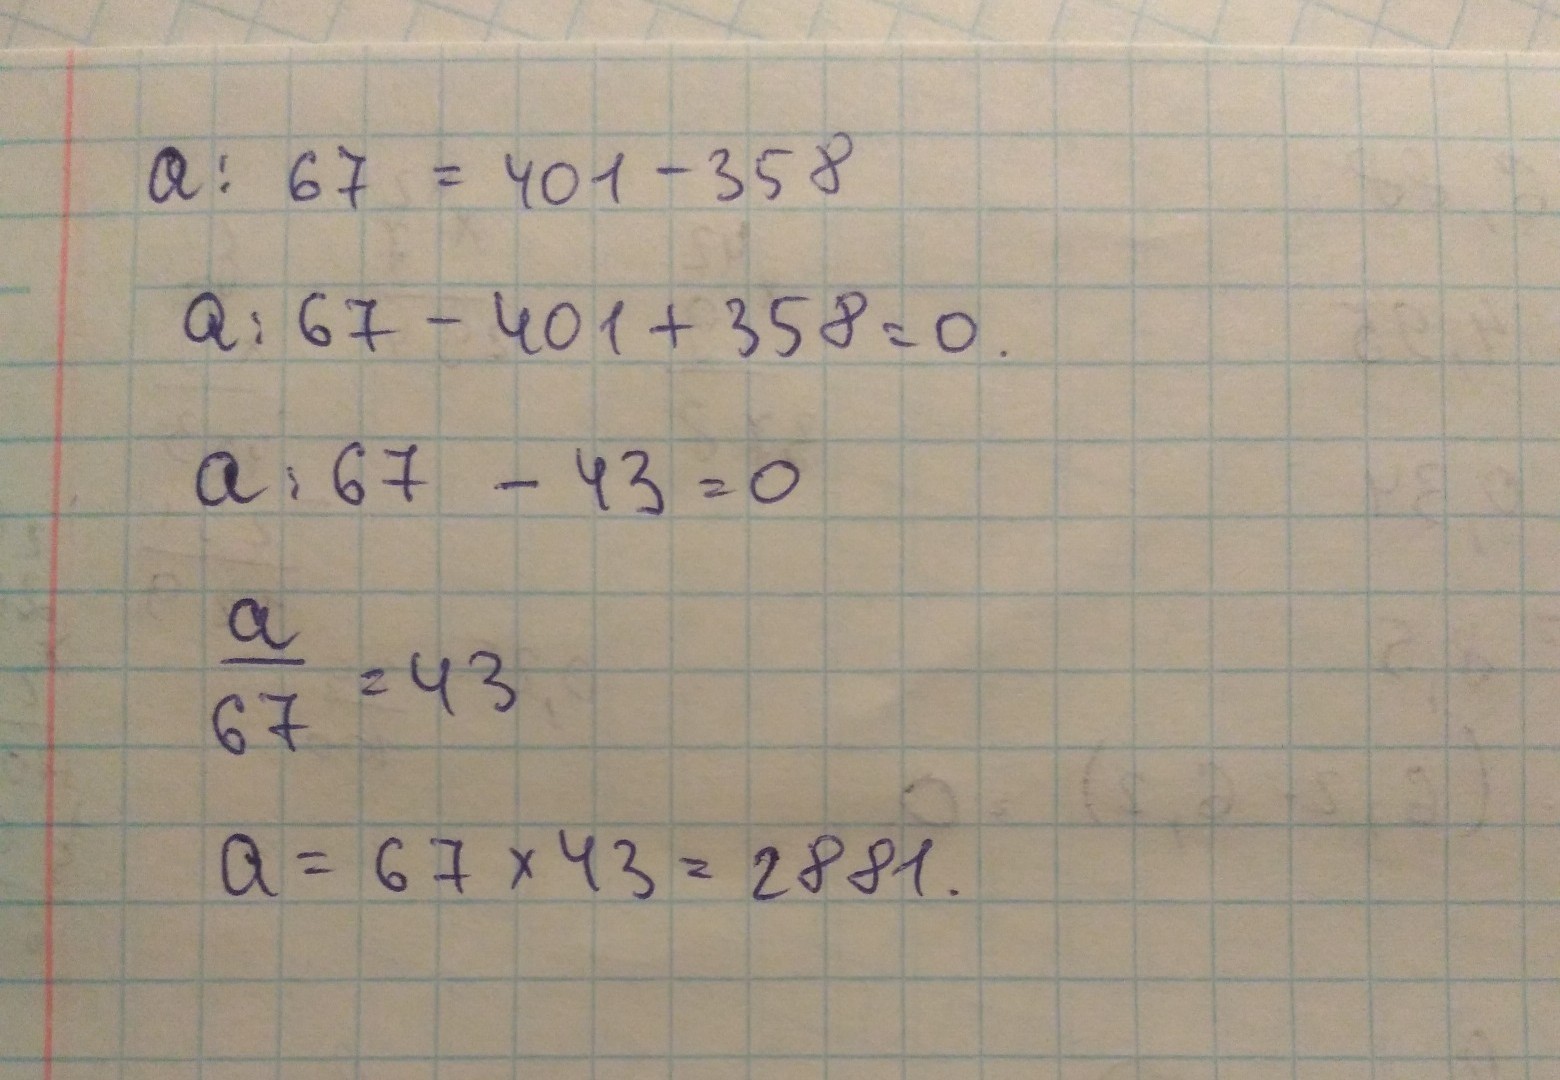 a : 67 = 401 - 358
a : 67 - 401 + 358 = 0.
a : 67 - 43 = 0
a
67
= 43
a = 67 × 43 = 2881.